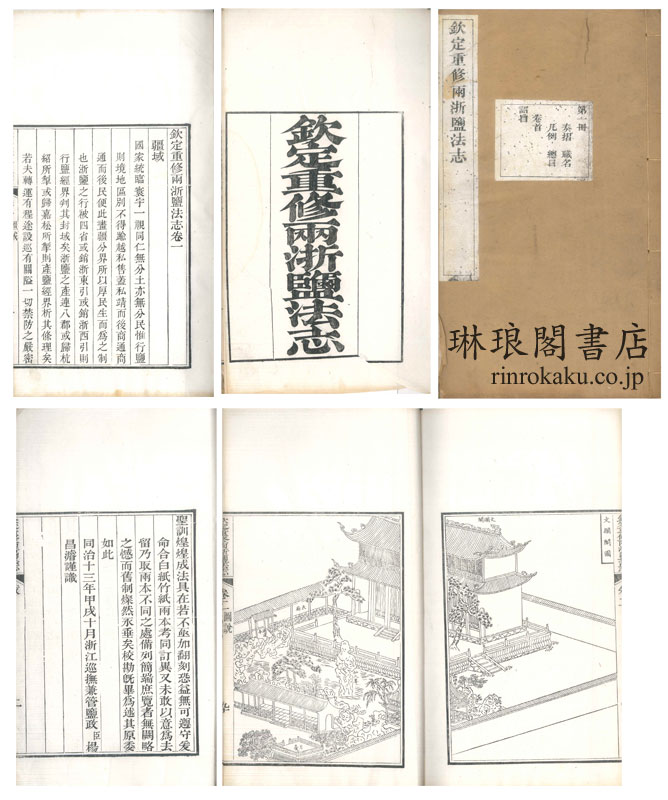 欽定重修兩浙鹽法志卷一
疆域
國家統臨寰宇一視同仁無分土亦無分民惟行鹽
則境地區別不得踰越私售蓋私靖而後商通商
通而後民便此畫疆分界所以厚民生而為之制
也浙鹽之行被四省或銷浙東引或銷浙西引則
行鹽經界判其封域矣浙鹽之產連八郡或歸杭
紹所掣或歸嘉松所掣則產鹽經界析其條理矣
若夫轉運有程途設巡有關隘一切禁防之嚴密
欽定重修兩浙鹽法志
欽定重修兩浙鹽法志
第一冊
奏摺 職名
凡例 總目
卷首
詔旨
琳琅閣書店
rinrokaku.co.jp
聖訓煌煌成法具在若不亟加翻刻恐益無可遵守爰
命合白紙竹紙兩本考同訂異又未敢以意為去
留乃取兩本不同之處備列簡端庶覽者無闕略
之憾而舊制燦然永垂矣校勘既畢為述其原委
如此
同治十三年甲戌十月浙江巡撫兼管鹽政臣楊
昌濬謹識
文瀾閣圖
文瀾閣
卷二圖說